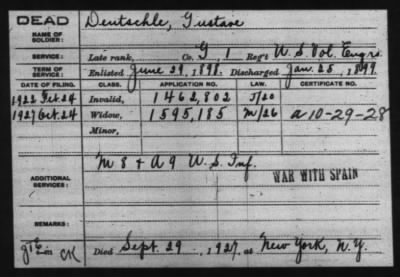 DEAD
NAME OF SOLDIER: Deutschle, Gustave
SERVICE: Late rank, Co. G, 1 Reg't U.S. Vol. Engrs.
TERM OF SERVICE: Enlisted June 29, 1898. Discharged Jan. 25, 1899.
DATE OF FILING. CLASS. APPLICATION NO. LAW. CERTIFICATE NO.
1922 Feb. 24 Invalid, 1462,802 J/20
1927 Oct. 24 Widow, 1595,185 M/26 a 10-29-28
Minor,
ADDITIONAL SERVICES: M 8 + A 9 U.S. Inf.
WAR WITH SPAIN
REMARKS:
CK Died Sept. 29, 1927, at New York, N.Y.